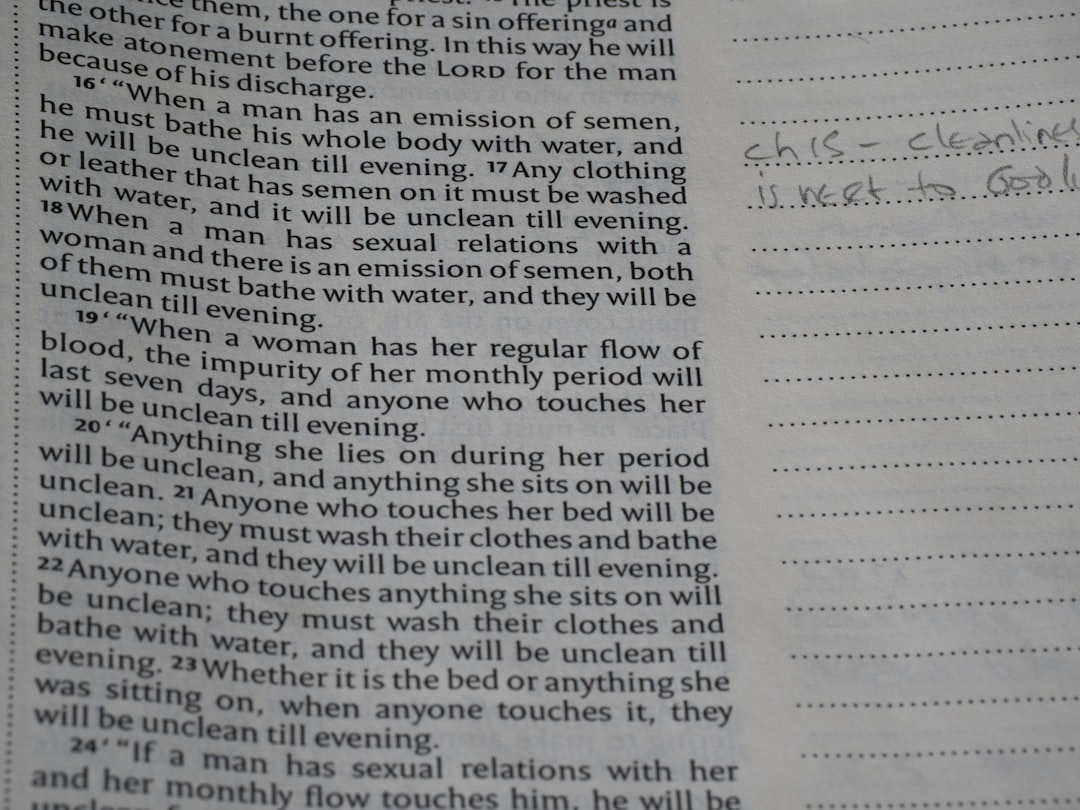 them, the one for a sin offeringa and
the other for a burnt offering. In this way he will
make atonement before the LORD for the man
because of his discharge.
16‘ “When a man has an emission of semen,
he must bathe his whole body with water, and
he will be unclean till evening. 17 Any clothing
or leather that has semen on it must be washed
with water, and it will be unclean till evening.
18 When a man has sexual relations with a
woman and there is an emission of semen, both
of them must bathe with water, and they will be
unclean till evening.
19‘ “When a woman has her regular flow of
blood, the impurity of her monthly period will
last seven days, and anyone who touches her
will be unclean till evening.
20‘ “Anything she lies on during her period
will be unclean, and anything she sits on will be
unclean. 21 Anyone who touches her bed will be
unclean; they must wash their clothes and bathe
with water, and they will be unclean till evening.
22 Anyone who touches anything she sits on will
be unclean; they must wash their clothes and
bathe with water, and they will be unclean till
evening. 23 Whether it is the bed or anything she
was sitting on, when anyone touches it, they
will be unclean till evening.
24‘ “If a man has sexual relations with her
and her monthly flow touches him, he will be
ch 15 - cleanlines
is next to Godl